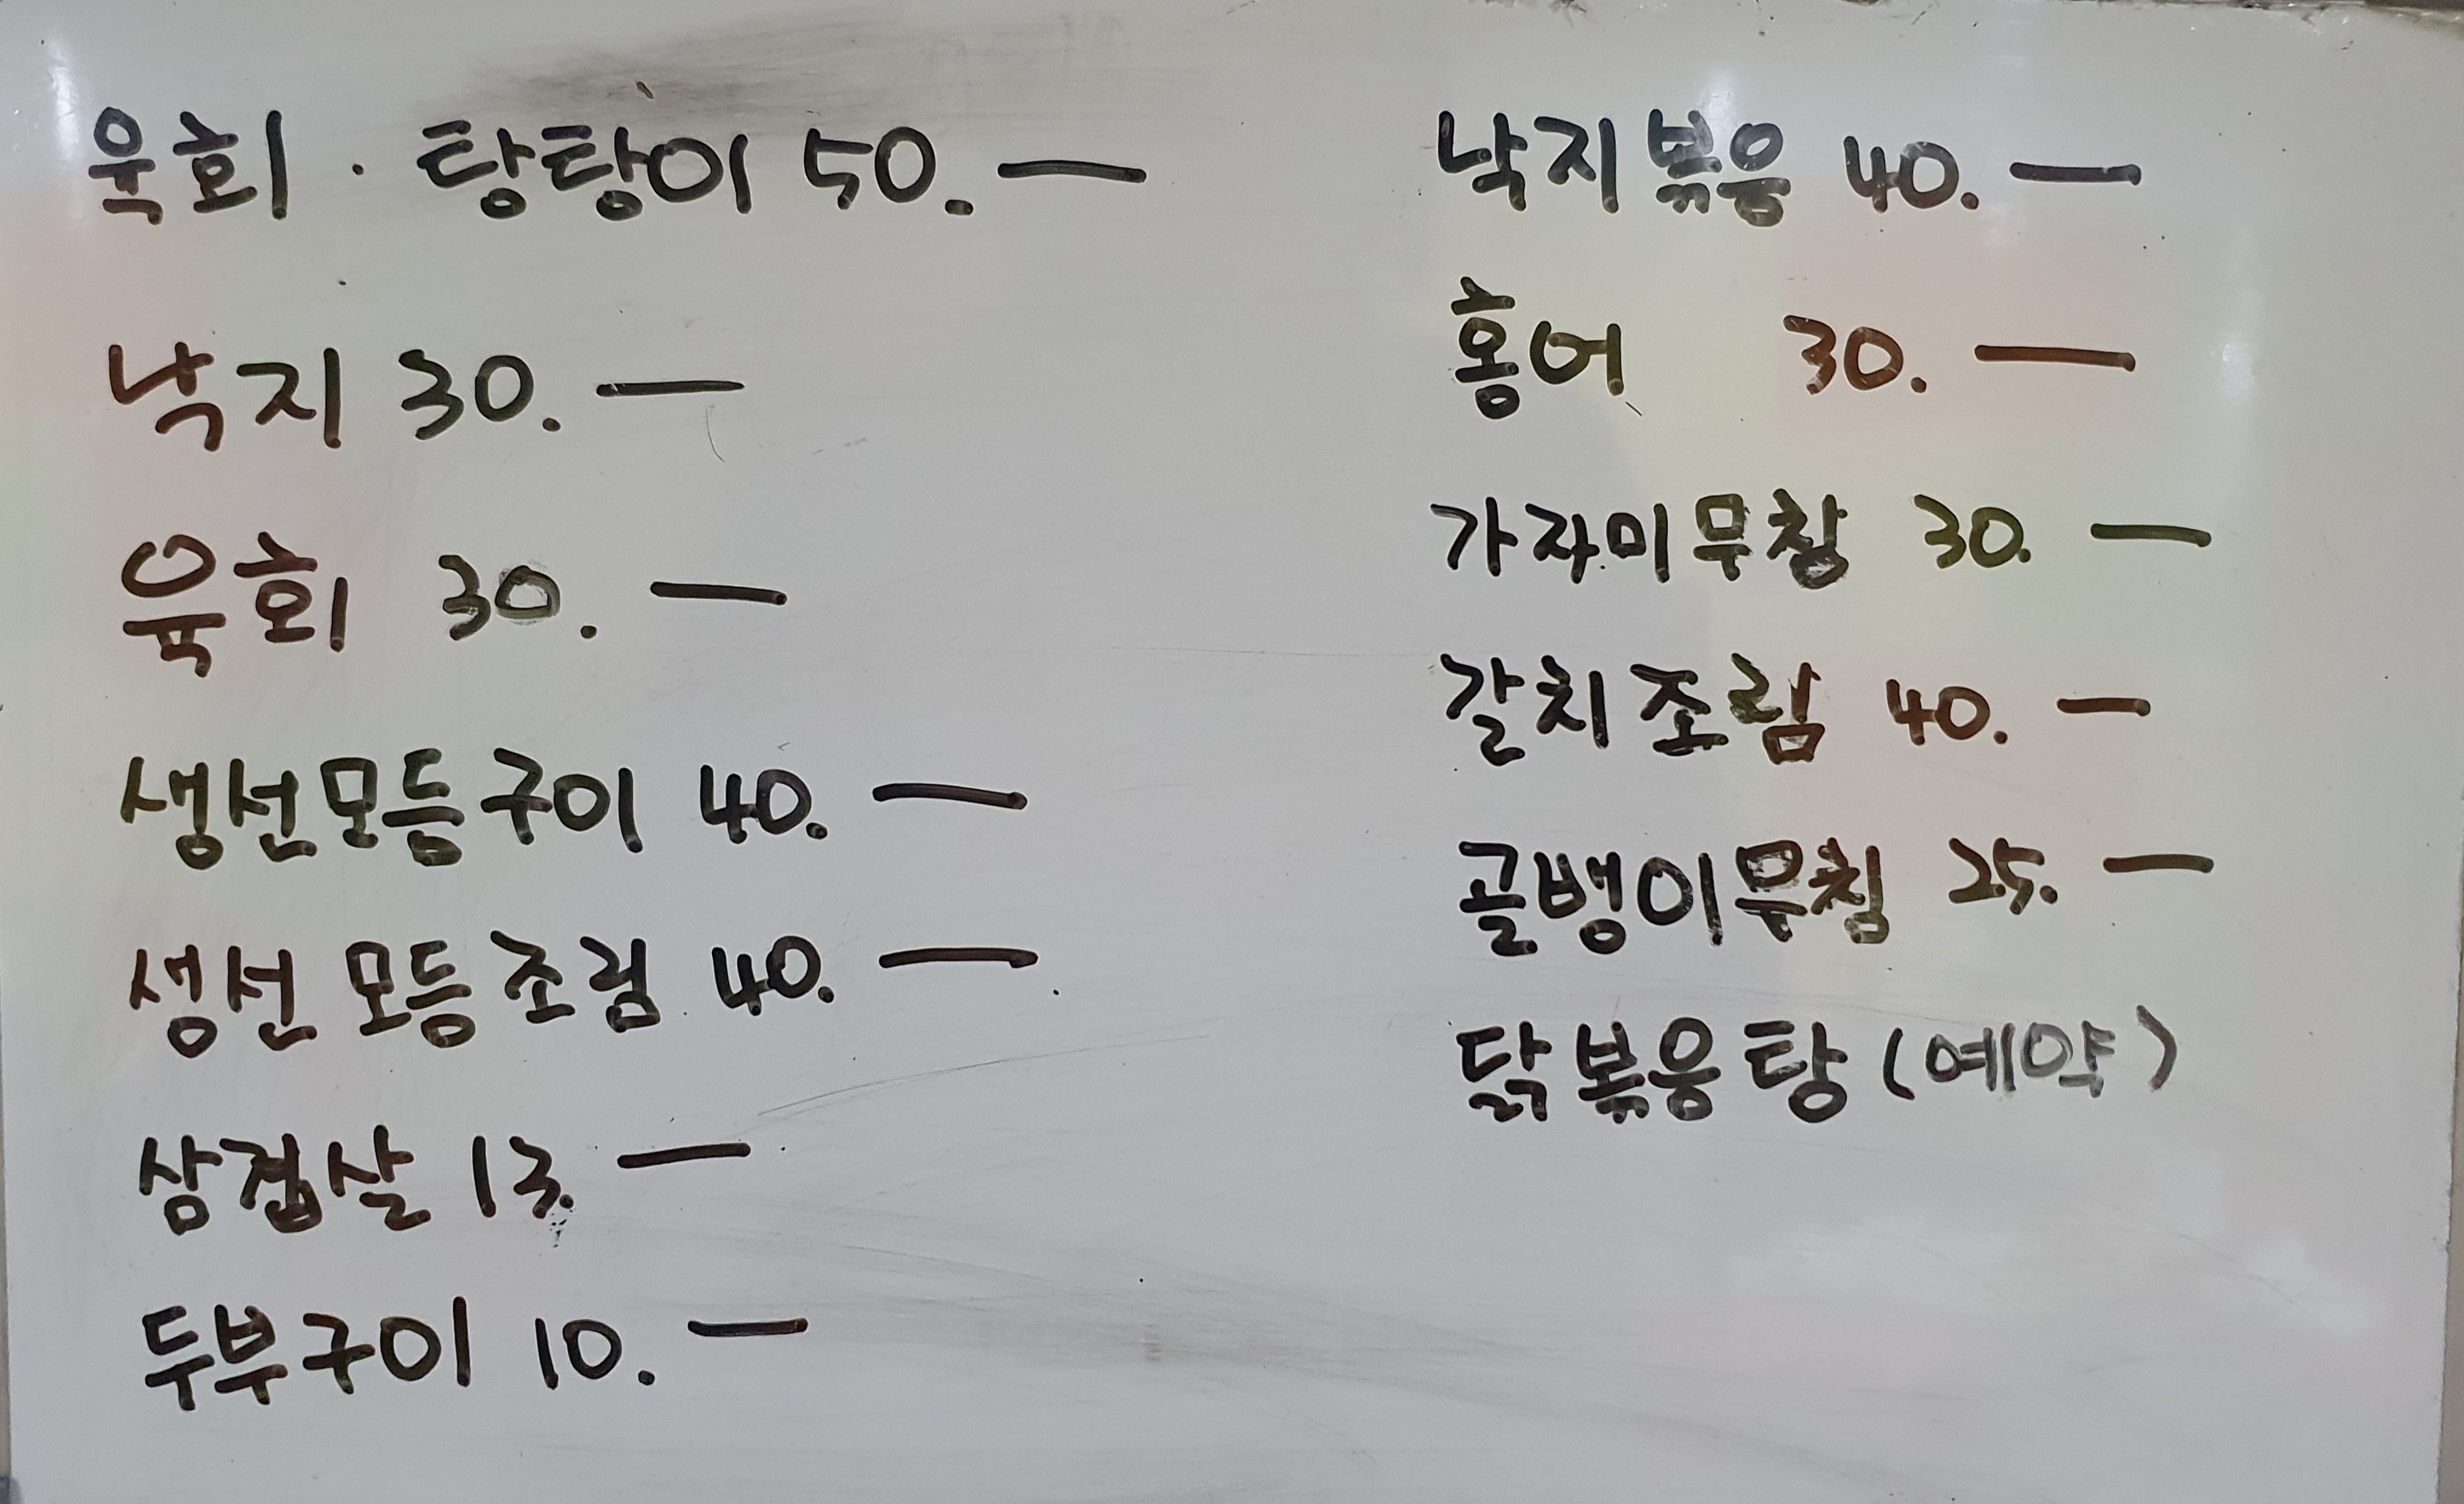 육회 · 탕탕이 50. —
낙지 30. —
육회 30. —
생선모듬구이 40. —
생선 모듬 조림 40. —
삼겹살 13. —
두부구이 10. —
낙지볶음 40. —
홍어 30. —
가자미무침 30. —
갈치조림 40. —
골뱅이무침 25. —
닭볶음탕 (예약)